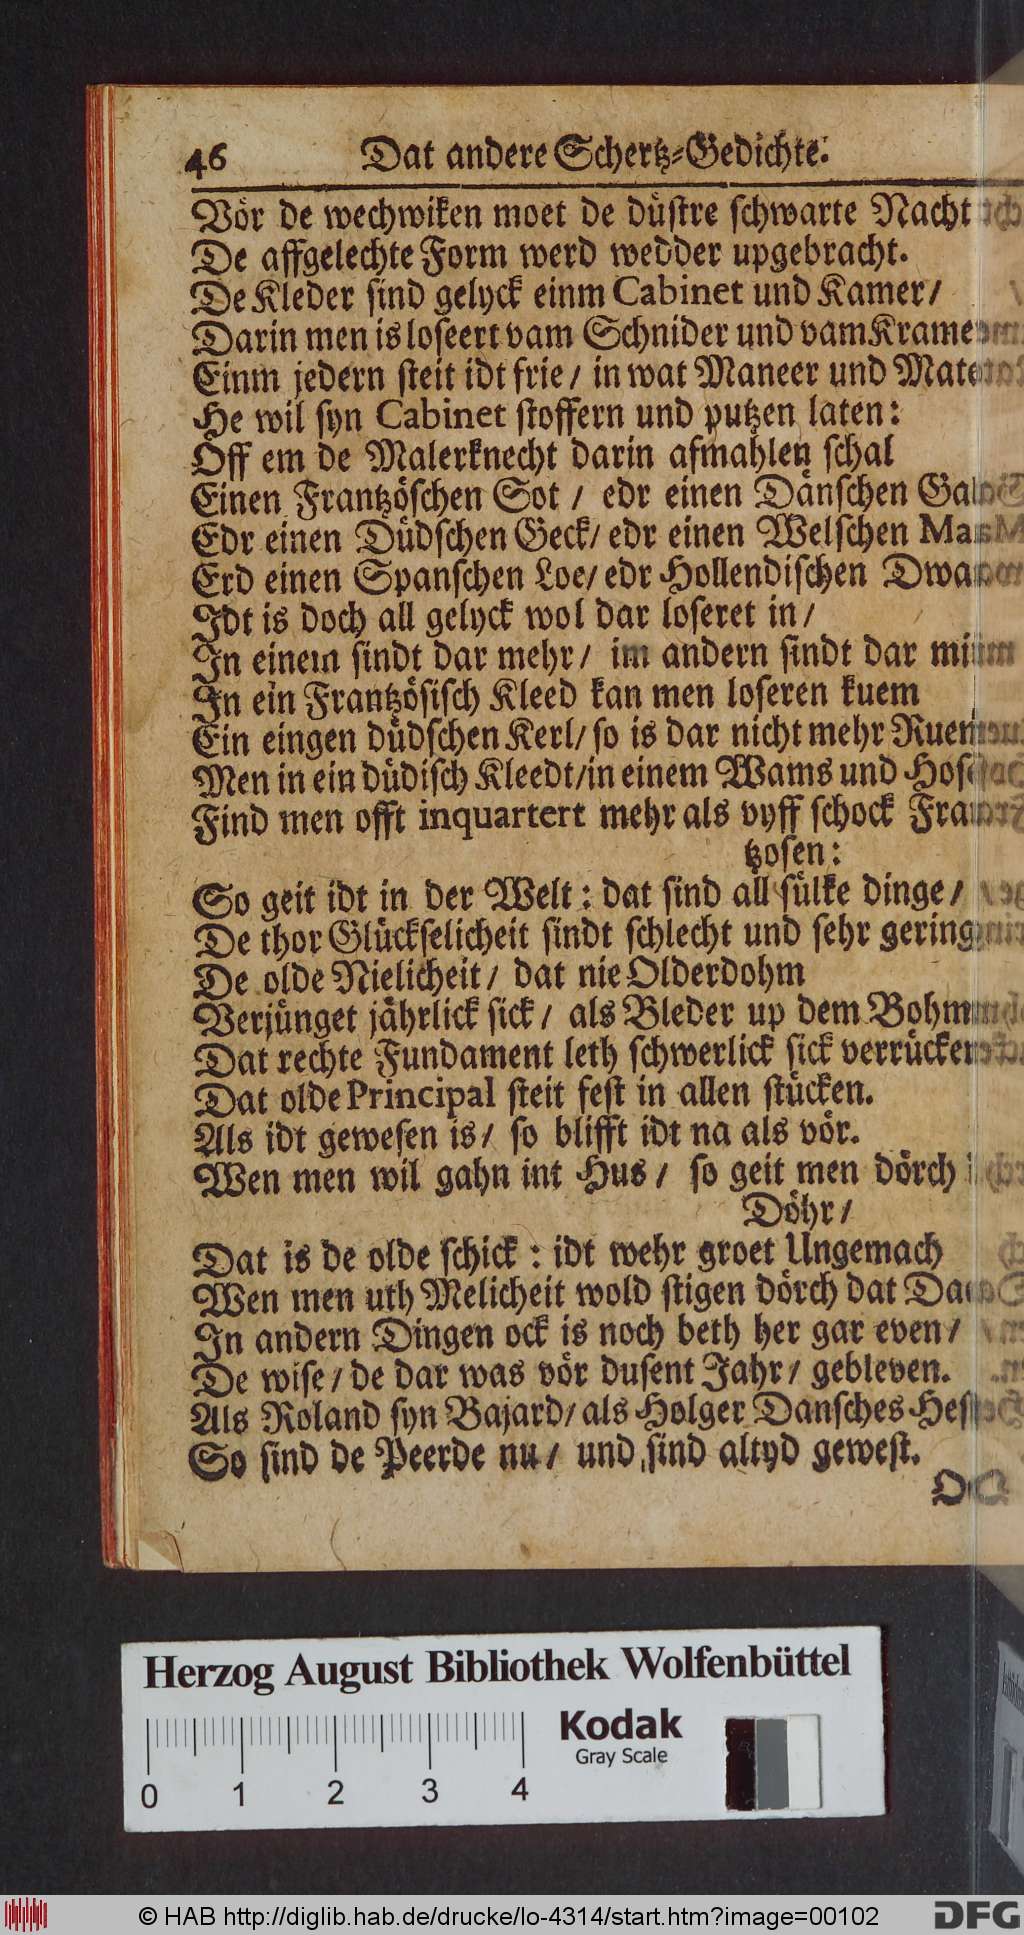 46 Dat andere Schertz-Gedichte.
Vör de wechwiken moet de düstre schwarte Nacht
De affgelechte Form werd wedder upgebracht.
De Kleder sind gelyck einm Cabinet und Kamer/
Darin men is loseert vam Schnider und vam
Einm jedern steit idt frie/ in wat Maneer und
He wil syn Cabinet stoffern und putzen laten:
Off em de Malerknecht darin afmahlen schal
Einen Frantzöschen Sot / edr einen Dänschen
Edr einen Düdschen Geck/ edr einen Welschen
Erd einen Spanschen Loe/ edr Hollendischen
Idt is doch all gelyck wol dar loseret in/
In einem sindt dar mehr/ im andern sindt dar
In ein Frantzösisch Kleed kan men loseren kuem
Ein eingen düdschen Kerl/ so is dar nicht mehr
Men in ein düdisch Kleedt/in einem Wams und
Find men offt inquartert mehr als vyff schock
tzosen:
So geit idt in der Welt: dat sind all sülke dinge/
De thor Glückselicheit sindt schlecht und sehr
De olde Nielicheit/ dat nie Olderdohm
Verjünget jährlick sick/ als Bleder up dem Bohm
Dat rechte Fundament leth schwerlick sick
Dat olde Principal steit fest in allen stücken.
Als idt gewesen is/ so blifft idt na als vör.
Wen men wil gahn int Hus/ so geit men dörch
Döhr/
Dat is de olde schick: idt wehr groet Ungemach
Wen men uth Melicheit wold stigen dörch dat
In andern Dingen ock is noch beth her gar even/
De wise/ de dar was vör dusent Jahr/ gebleven.
Als Roland syn Bajard/ als Holger Dansches
So sind de Peerde nu/ und sind altyd gewest.
Herzog August Bibliothek Wolfenbüttel
Kodak
Gray Scale
0 1 2 3 4
© HAB http://diglib.hab.de/drucke/lo-4314/start.htm?image=00102
DFG